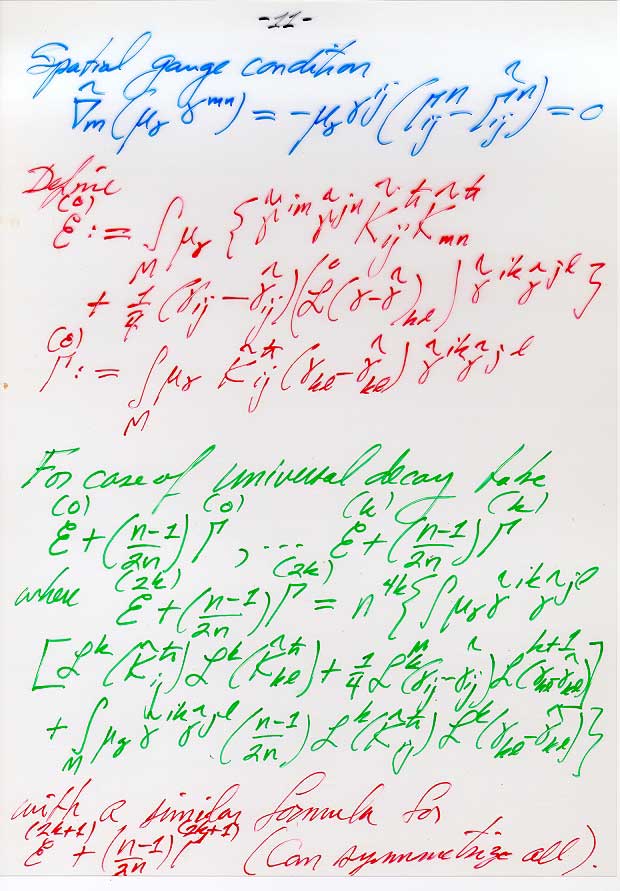 -11-
Spatial gauge condition
∇̂_m(μ_γ γ^{mn}) = -μ_γ γ^{ij}(Γ^n_{ij} - Γ̂^n_{ij}) = 0
Define
ℰ^{(0)} := ∫_M μ_γ { γ̂^{im} γ̂^{jn} K̂^{tr}_{ij} K̂^{tr}_{mn}
+ 1/4 (γ_{ij} - γ̂_{ij})(ℒ̂(γ-γ̂)_{kl}) γ̂^{ik} γ̂^{jl} }
Γ^{(0)} := ∫_M μ_γ K̂^{tr}_{ij} (γ_{kl} - γ̂_{kl}) γ̂^{ik} γ̂^{jl}
For case of universal decay take
ℰ^{(0)} + ((n-1)/2n) Γ^{(0)}, ... ℰ^{(k)} + ((n-1)/2n) Γ^{(k)}
where ℰ^{(2k)} + ((n-1)/2n) Γ^{(2k)} = n^{4k} { ∫ μ_γ γ̂^{ik} γ̂^{jl}
[ ℒ^k(K̂^{tr}_{ij}) ℒ^k(K̂^{tr}_{kl}) + 1/4 ℒ^k(γ_{ij} - γ̂_{ij}) ℒ^{k+1}(γ_{kl} - γ̂_{kl}) ]
+ ∫_M μ_γ γ̂^{ik} γ̂^{jl} ((n-1)/2n) ℒ^k(K̂^{tr}_{ij}) ℒ^k(γ_{kl} - γ̂_{kl}) }
with a similar formula for
ℰ^{(2k+1)} + ((n-1)/2n) Γ^{(2k+1)} (Can symmetrize all).